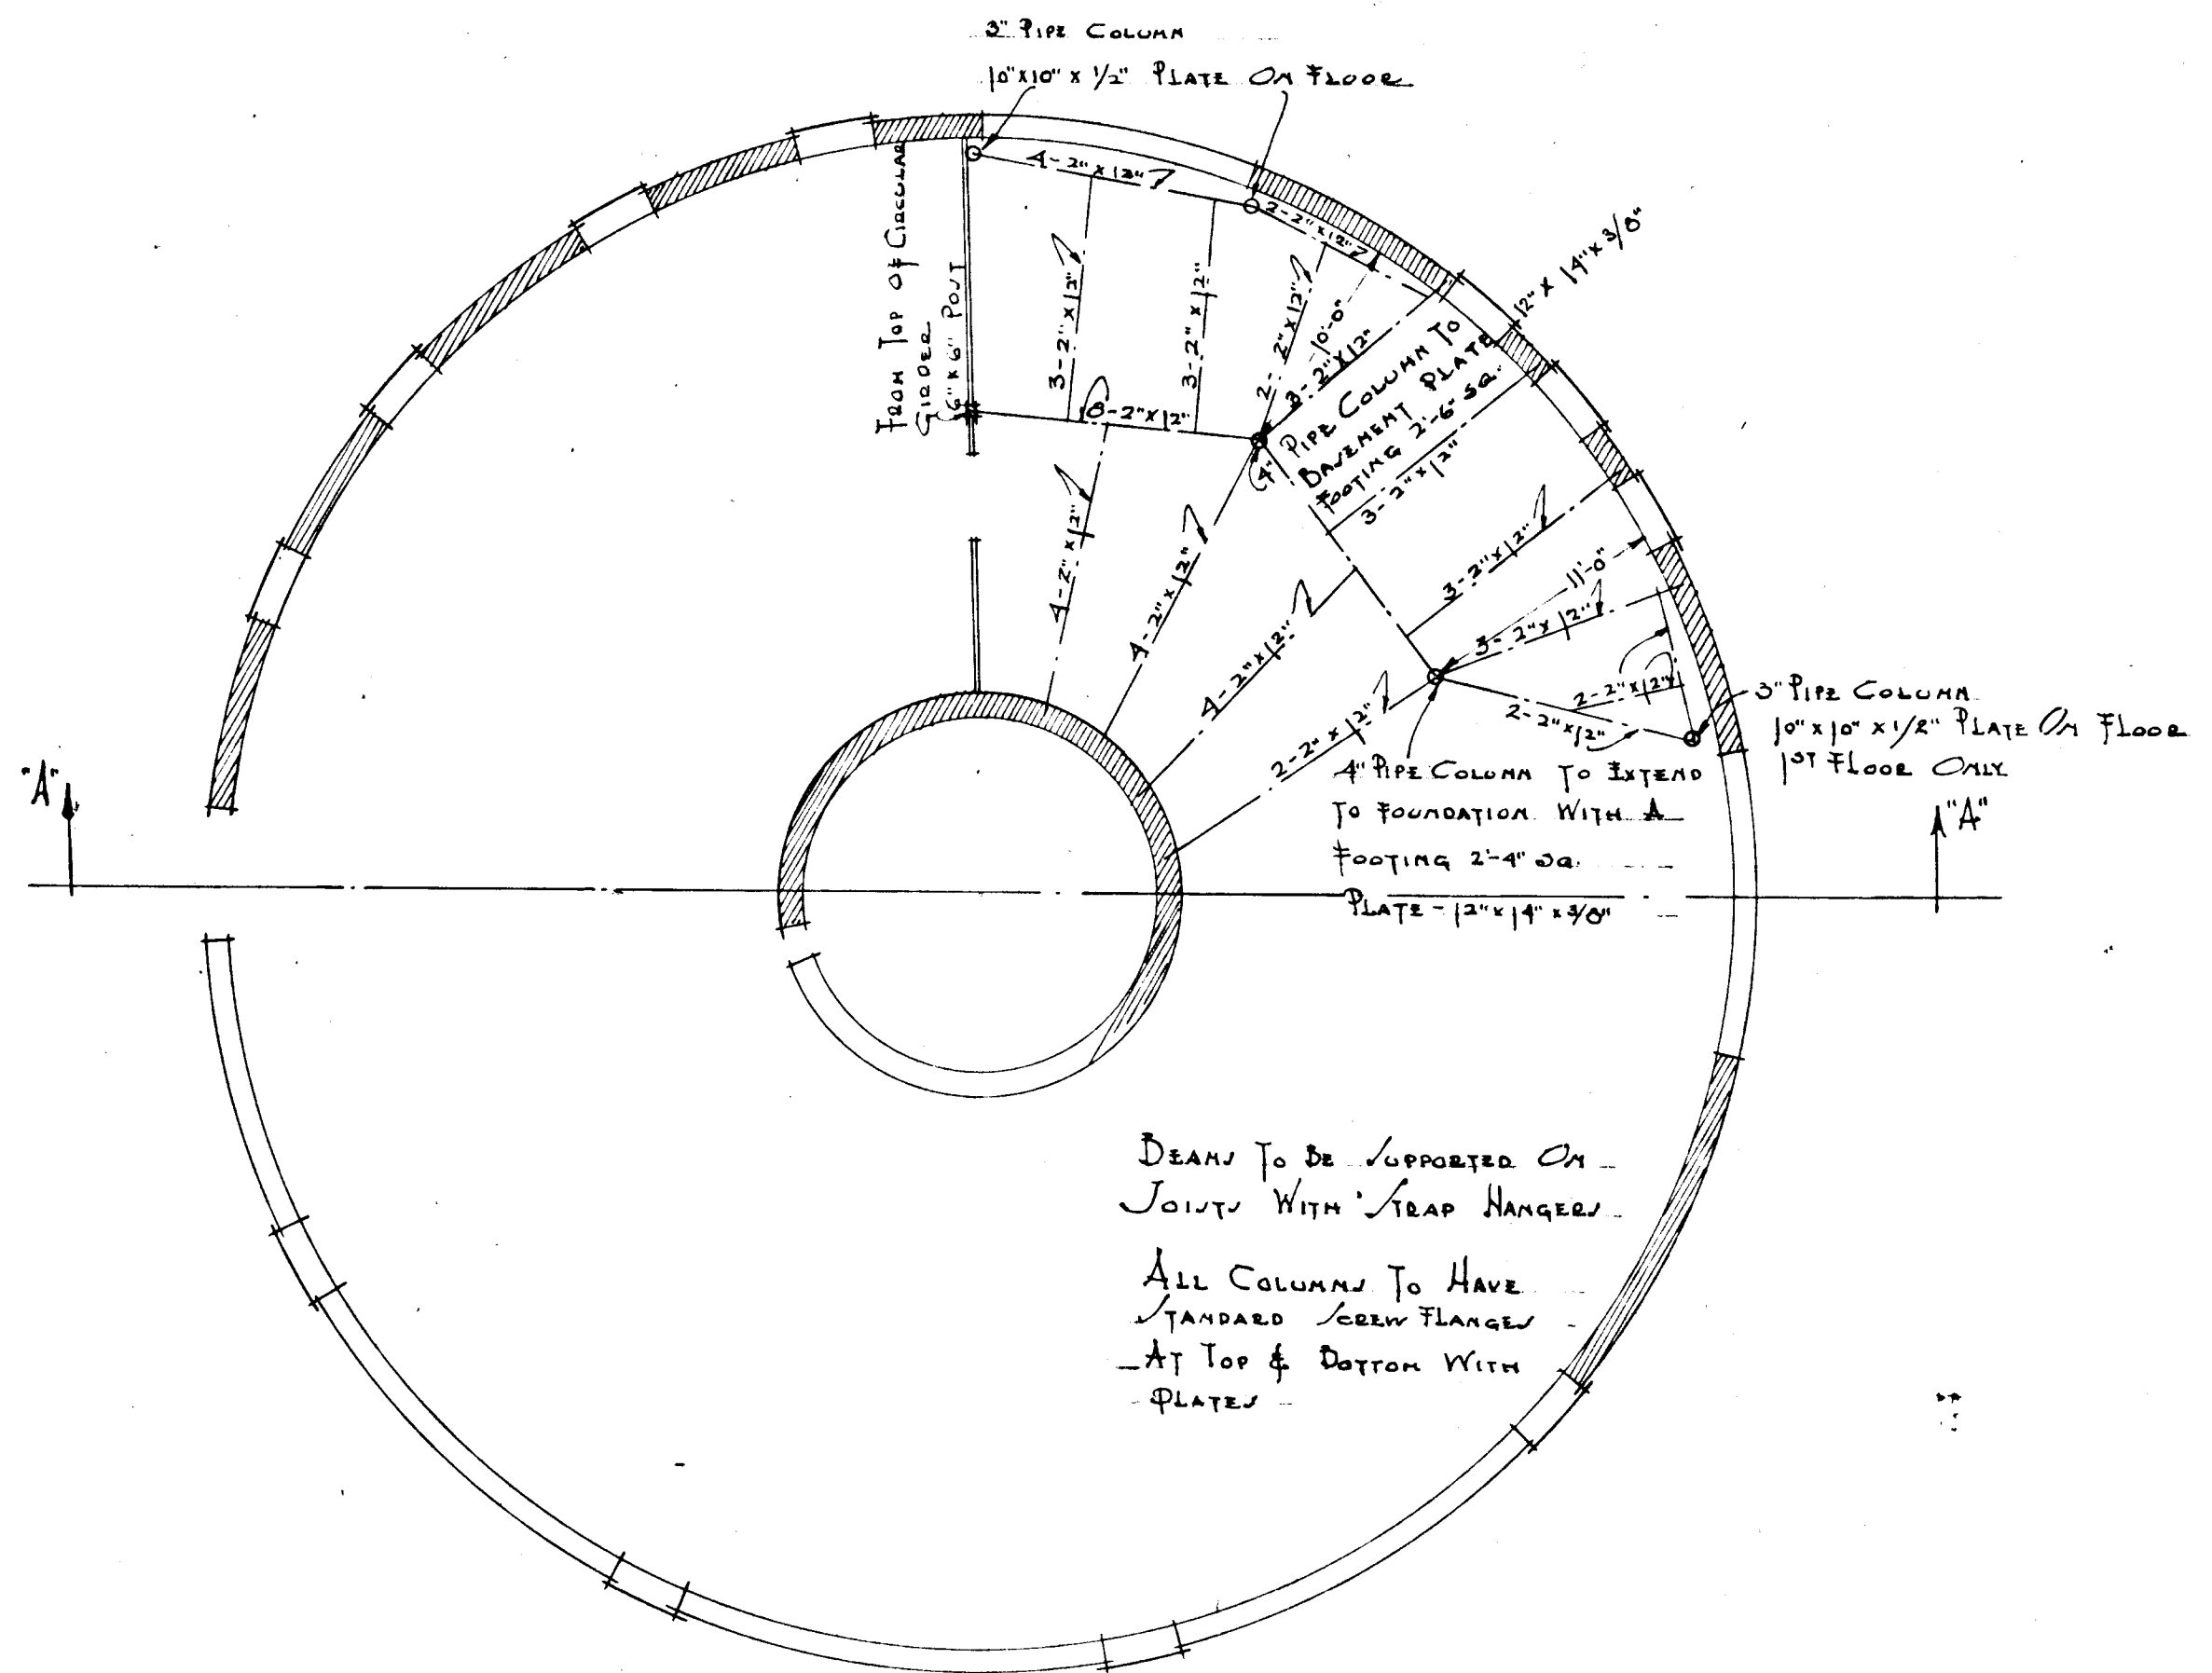 3" PIPE COLUMN
10"x10" x 1/2" PLATE ON FLOOR
4-2"x12"
2-2"x12"
FROM TOP OF CIRCULAR
GIRDER
6"x6" POST
3-2"x12"
3-2"x12"
2-2"x12"
10'-0"
3-2"x12"
8-2"x12"
4" PIPE COLUMN TO
BASEMENT PLATE 12" x 14" x 3/8"
FOOTING 2'-6" SQ.
3-2"x12"
3-2"x12"
11'-0"
3-2"x12"
4-2"x12"
4-2"x12"
4-2"x12"
2-2"x12"
2-2"x12"
2-2"x12"
3" PIPE COLUMN
10" x 10" x 1/2" PLATE ON FLOOR
1ST FLOOR ONLY
4" PIPE COLUMN TO EXTEND
TO FOUNDATION WITH A
FOOTING 2'-4" SQ.
PLATE - 12" x 14" x 3/8"
"A"
"A"
BEAMS TO BE SUPPORTED ON
JOISTS WITH STRAP HANGERS
ALL COLUMNS TO HAVE
STANDARD SCREW FLANGES
AT TOP & BOTTOM WITH
PLATES